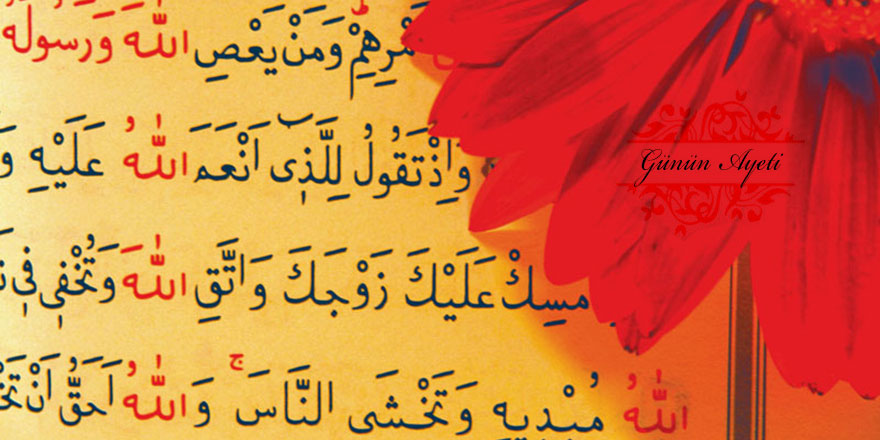 مْرِهِمْۜ وَمَنْ يَعْصِ اللّٰهَ وَرَسُولَهُ
وَاِذْ تَقُولُ لِلَّذ۪ٓي اَنْعَمَ اللّٰهُ عَلَيْهِ وَ
Günün Ayeti
مْسِكْ عَلَيْكَ زَوْجَكَ وَاتَّقِ اللّٰهَ وَتُخْف۪ي ف۪ي
اللّٰهُ مُبْد۪يهِ وَتَخْشَى النَّاسَۚ وَاللّٰهُ اَحَقُّ اَنْ